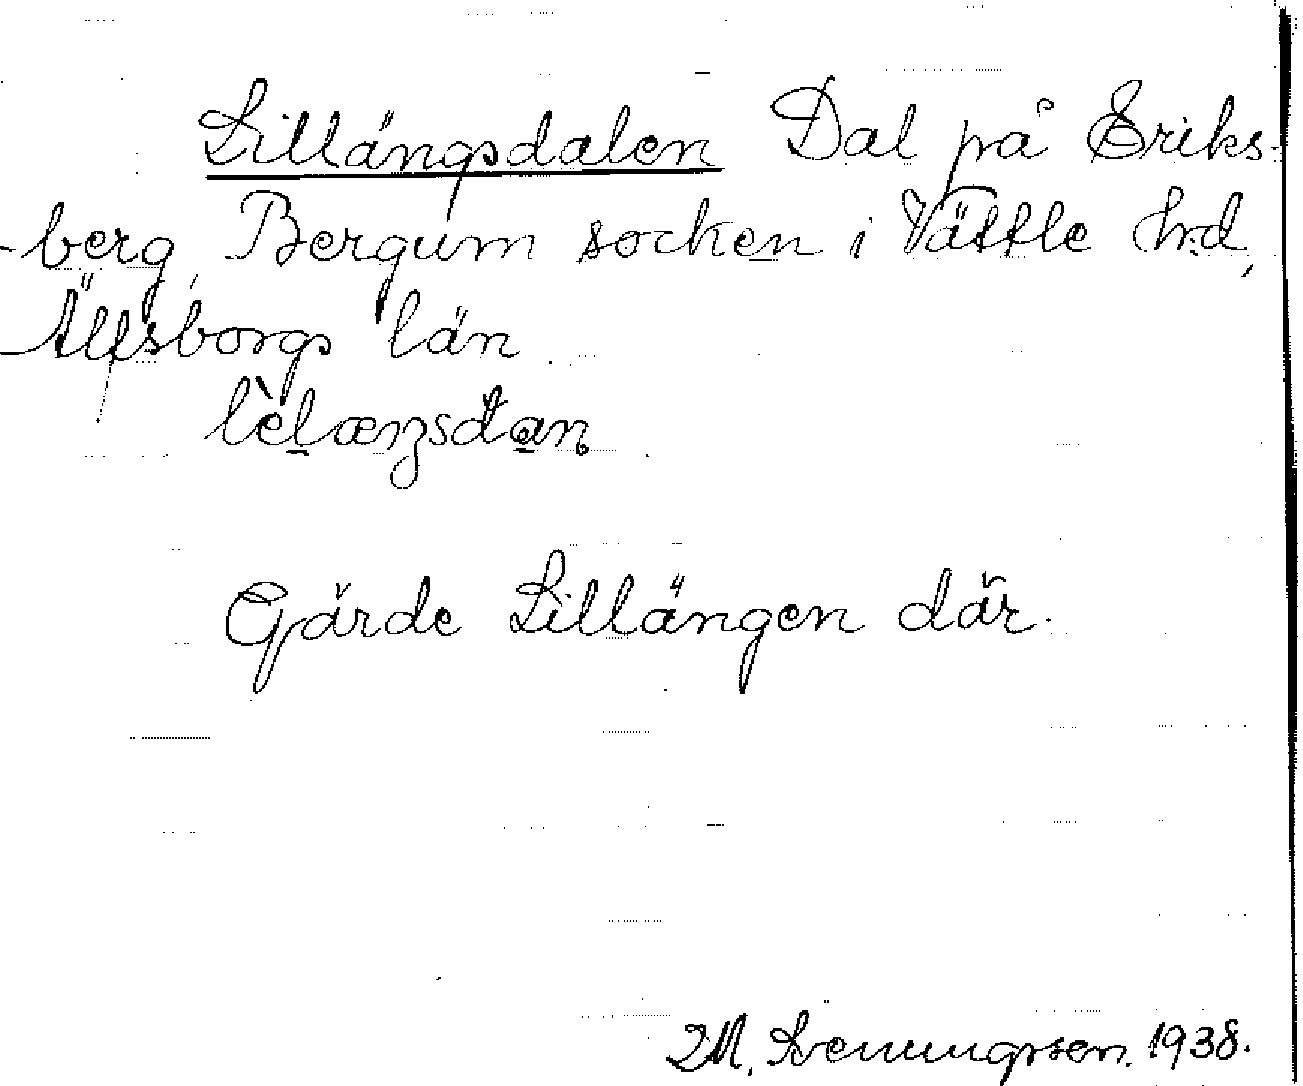 Lillängsdalen Dal på Eriks-
berg, Bergum socken i Vättle hd,
Älfsborgs län
lèlæŋsdan

Gärde Lillängen där.

1938.